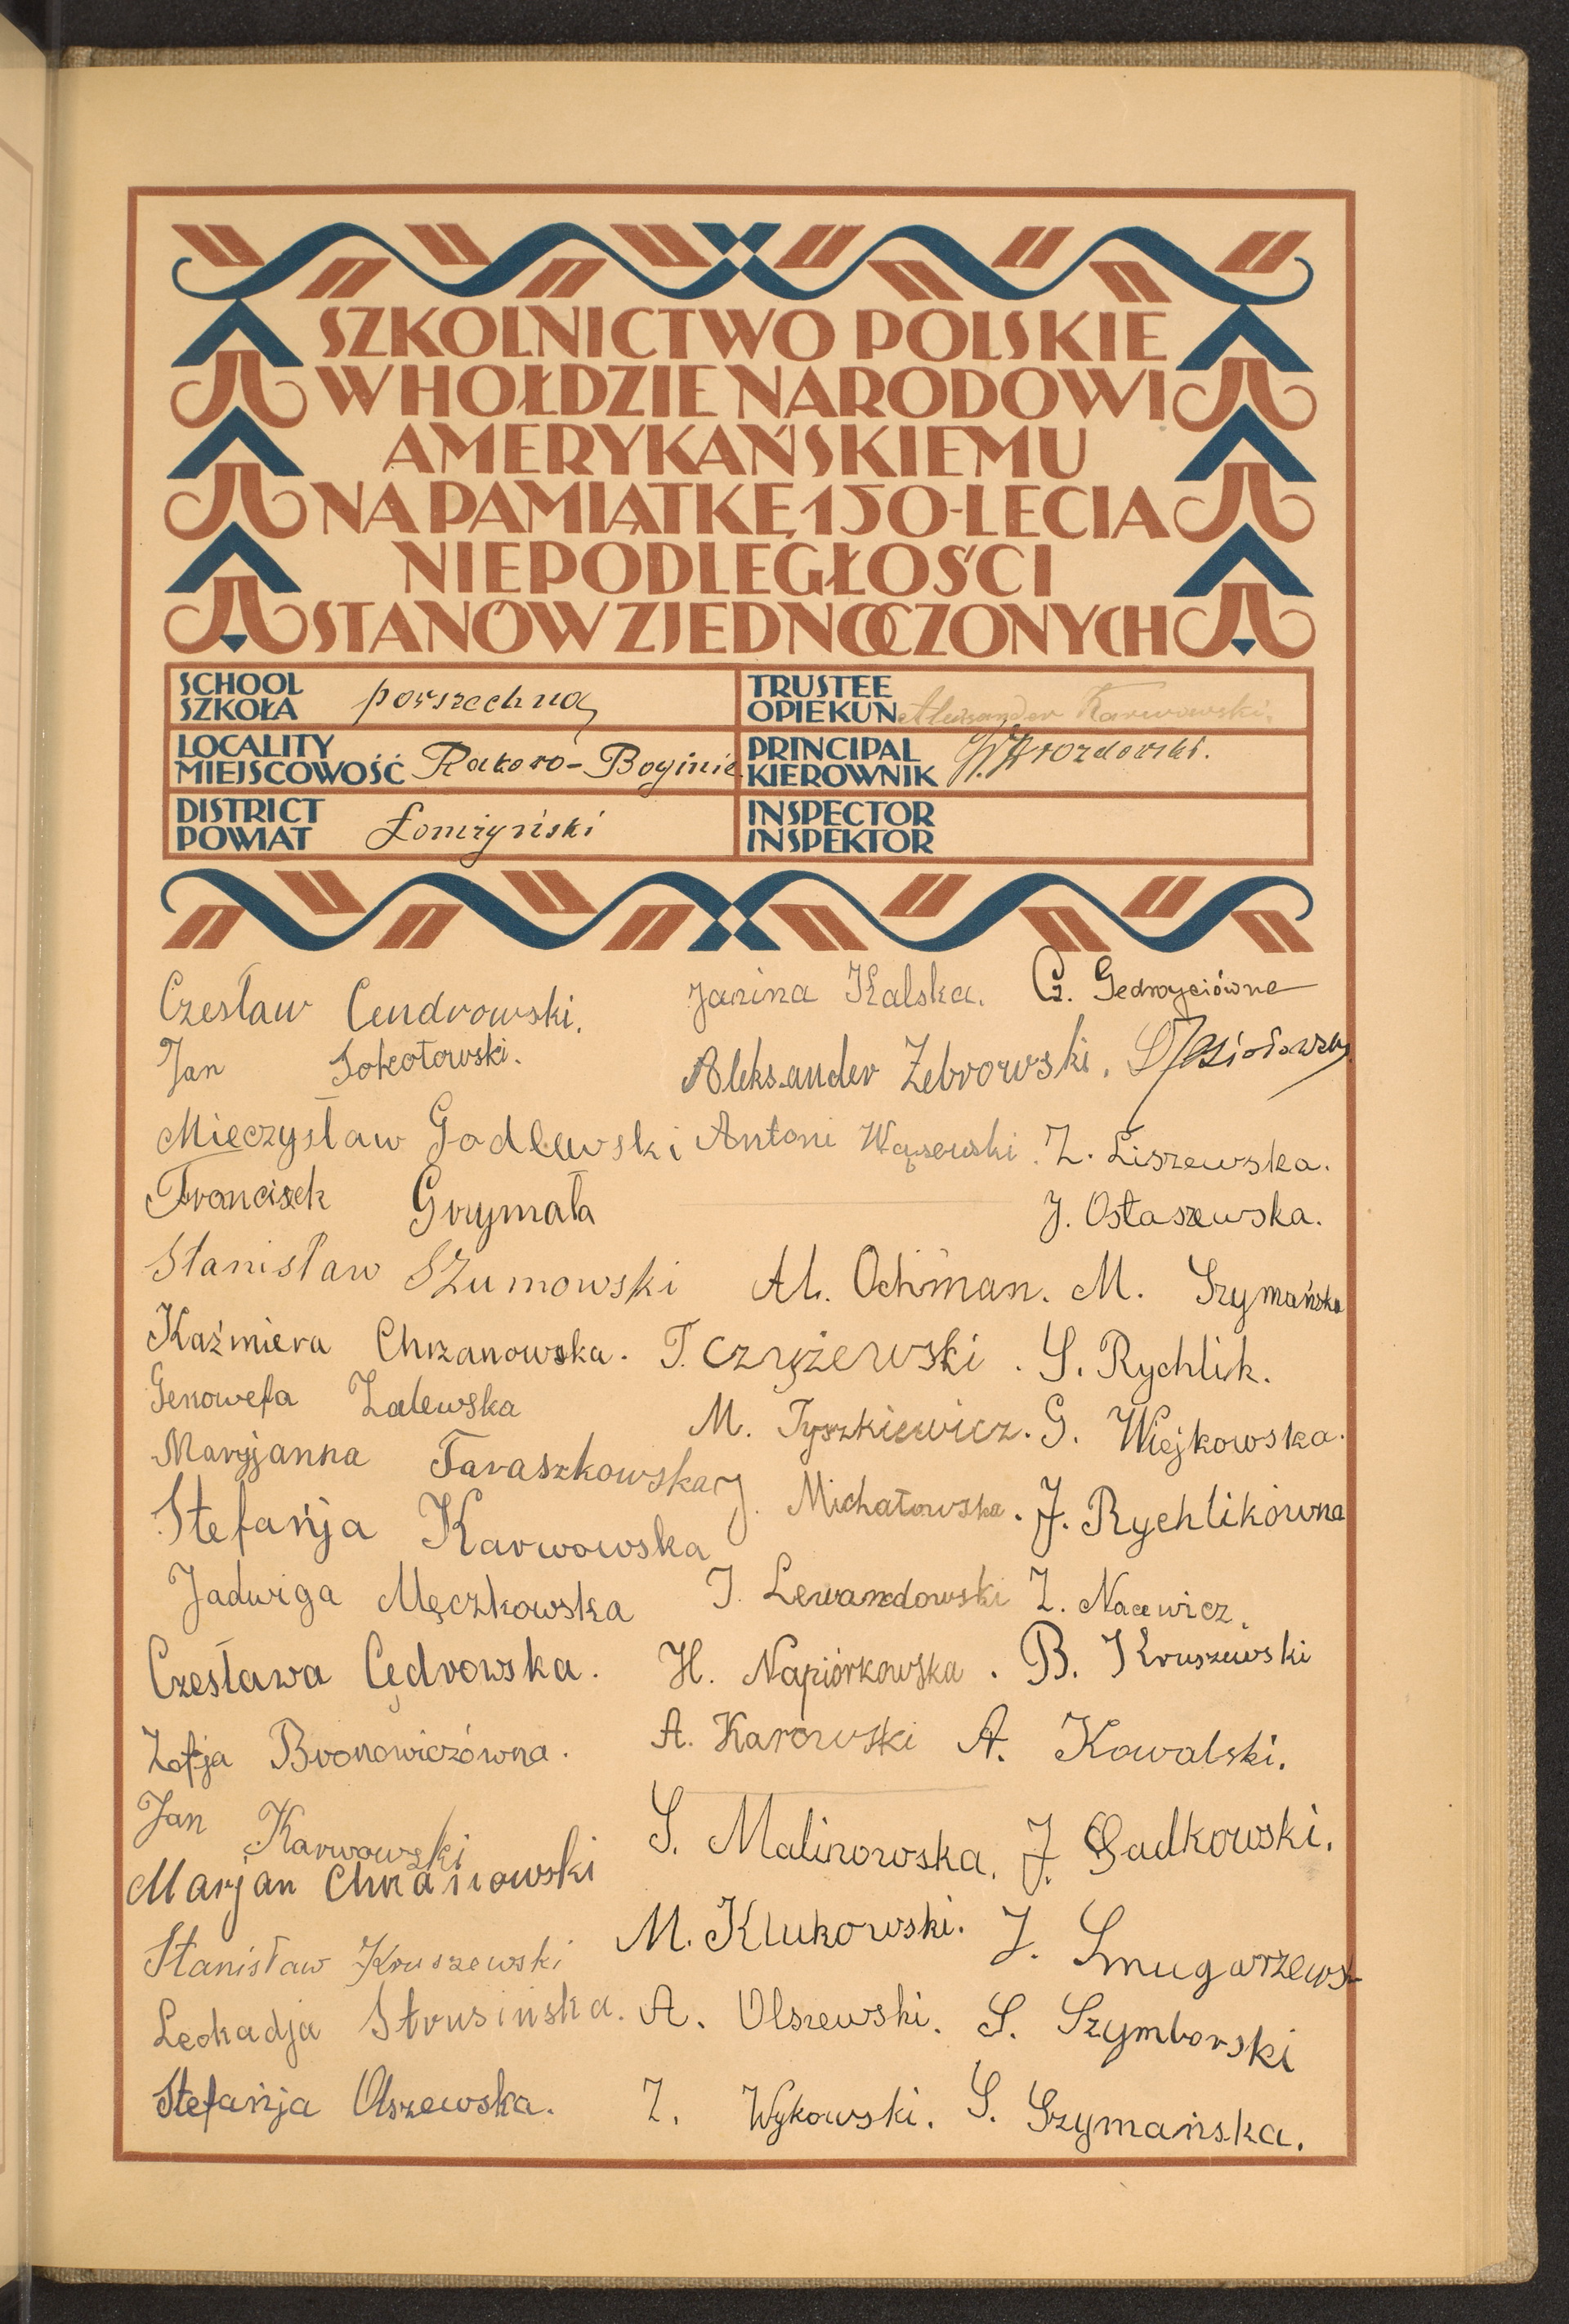 SZKOLNICTWO POLSKIE
W HOŁDZIE NARODOWI
AMERYKAŃSKIEMU
NA PAMIĄTKĘ 150-LECIA
NIEPODLEGŁOŚCI
STANÓW ZJEDNOCZONYCH
SCHOOL
SZKOŁA powszechna
TRUSTEE
OPIEKUN Aleksander Karwowski.
LOCALITY
MIEJSCOWOŚĆ Rakowo-Boginie
PRINCIPAL
KIEROWNIK
DISTRICT
POWIAT Łomżyński
INSPECTOR
INSPEKTOR
Czesław Cendrowski.
Jan Sokołowski.
Mieczysław Godlewski
Francisek Grymała
Stanisław Szumowski
Kaźmiera Chrzanowska.
Genowefa Zalewska
Maryjanna Taraszkowska
Stefańja Karwowska
Jadwiga Męczkowska
Czesława Cędrowska.
Zofja Bronowiczówna.
Jan Karwowski
Marjan Chrzanowski
Stanisław Kruszewski
Leokadja Strusińska.
Stefańja Olszewska.
Janina Kalska.
Aleksander Zebrowski.
Antoni Wąsewski.
Al. Ochman.
T. Czyżewski.
M. Tyszkiewicz.
J. Michałowska.
J. Lewandowski
H. Napiórkowska.
A. Karowski
S. Malinowska.
M. Klukowski.
A. Olszewski.
Z. Wykowski.
Cz. Gedroyciówna
Z. Liszewska.
J. Ostaszewska.
M. Szymańska
S. Rychlik.
G. Wiejkowska.
J. Rychlikówna
Z. Nacewicz.
B. Kruszewski
A. Kowalski.
J. Sadkowski.
J. Smugarzewsk
S. Szymborski
S. Szymańska.